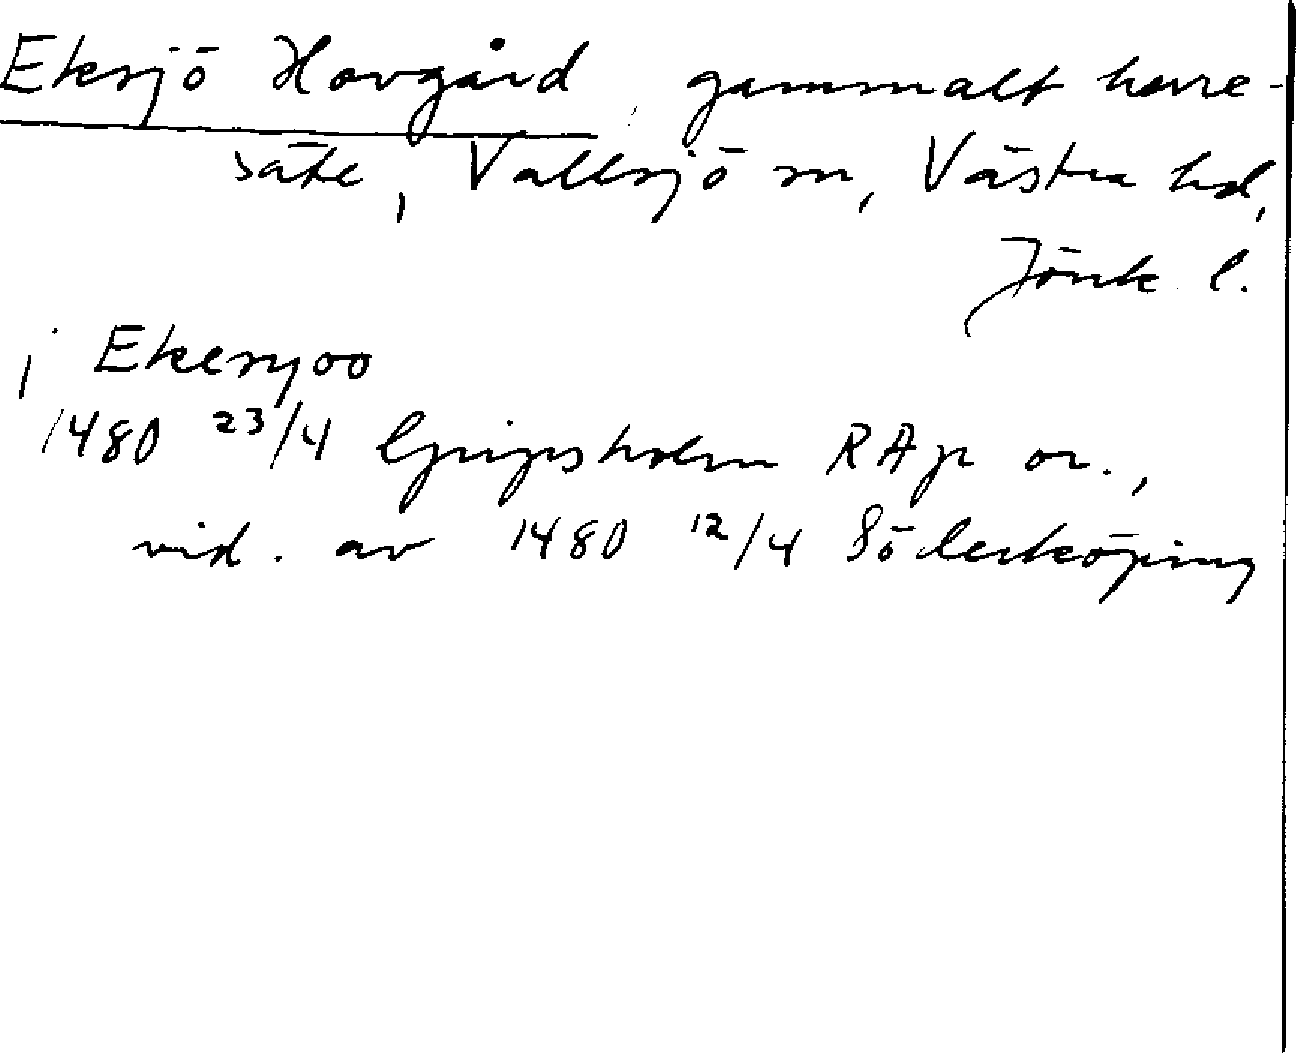 Eksjö Hovgård, gammalt herre-
säte, Vallsjö sn, Västra hd,
Jönk l.
i Ekesyoo
1480 23/4 Gripsholm RAp or.,
vid. av 1480 12/4 Söderköping